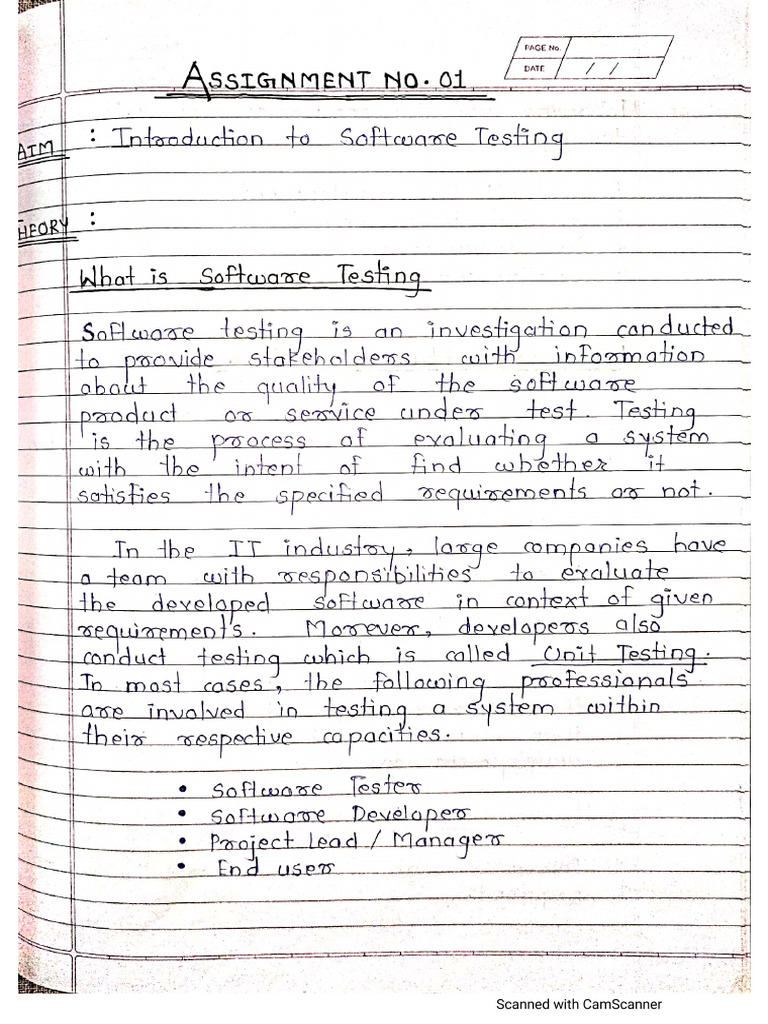 ASSIGNMENT NO. 01
PAGE No.
DATE / /
AIM : Introduction to Software Testing
THEORY :
What is Software Testing
Software testing is an investigation conducted
to provide stakeholders with information
about the quality of the software
product or service under test. Testing
is the process of evaluating a system
with the intent of find whether it
satisfies the specified requirements or not.
In the IT industry, large companies have
a team with responsibilities to evaluate
the developed software in context of given
requirements. Morever, developers also
conduct testing which is called Unit Testing.
In most cases, the following professionals
are involved in testing a system within
their respective capacities.
• Software Tester
• Software Developer
• Project Lead / Manager
• End user
Scanned with CamScanner